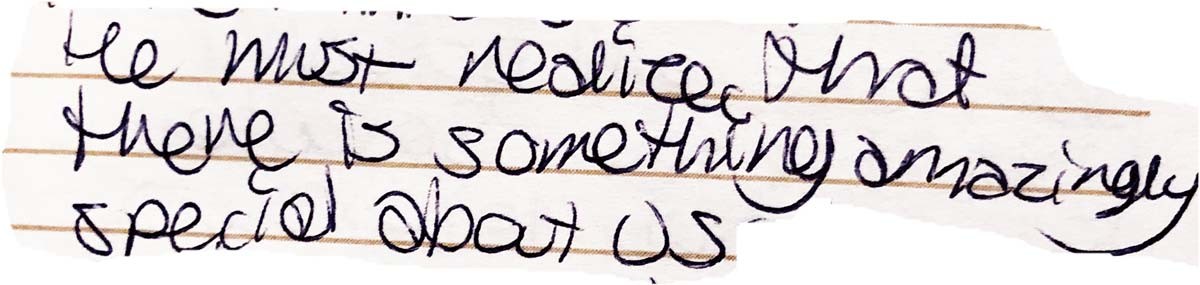 He must realize, that
there is something amazingly
special about us